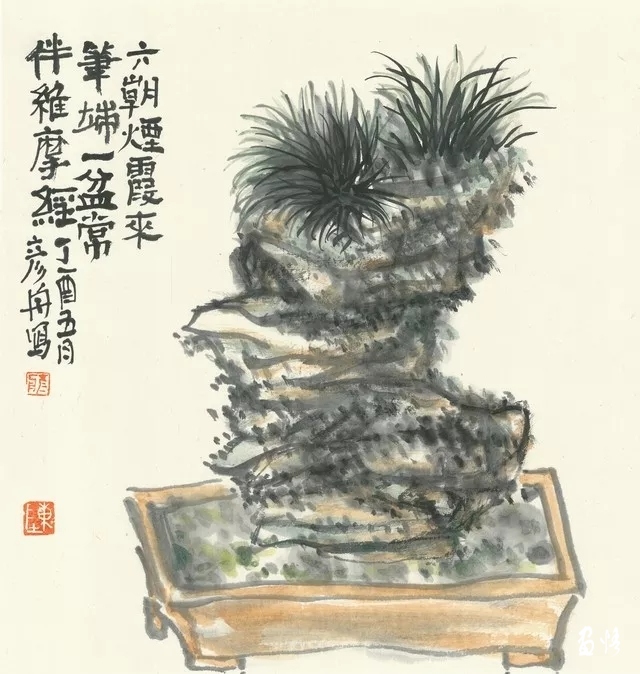 六朝煙霞來
筆端一盆常
伴維摩經丁酉五月
彥舟寫